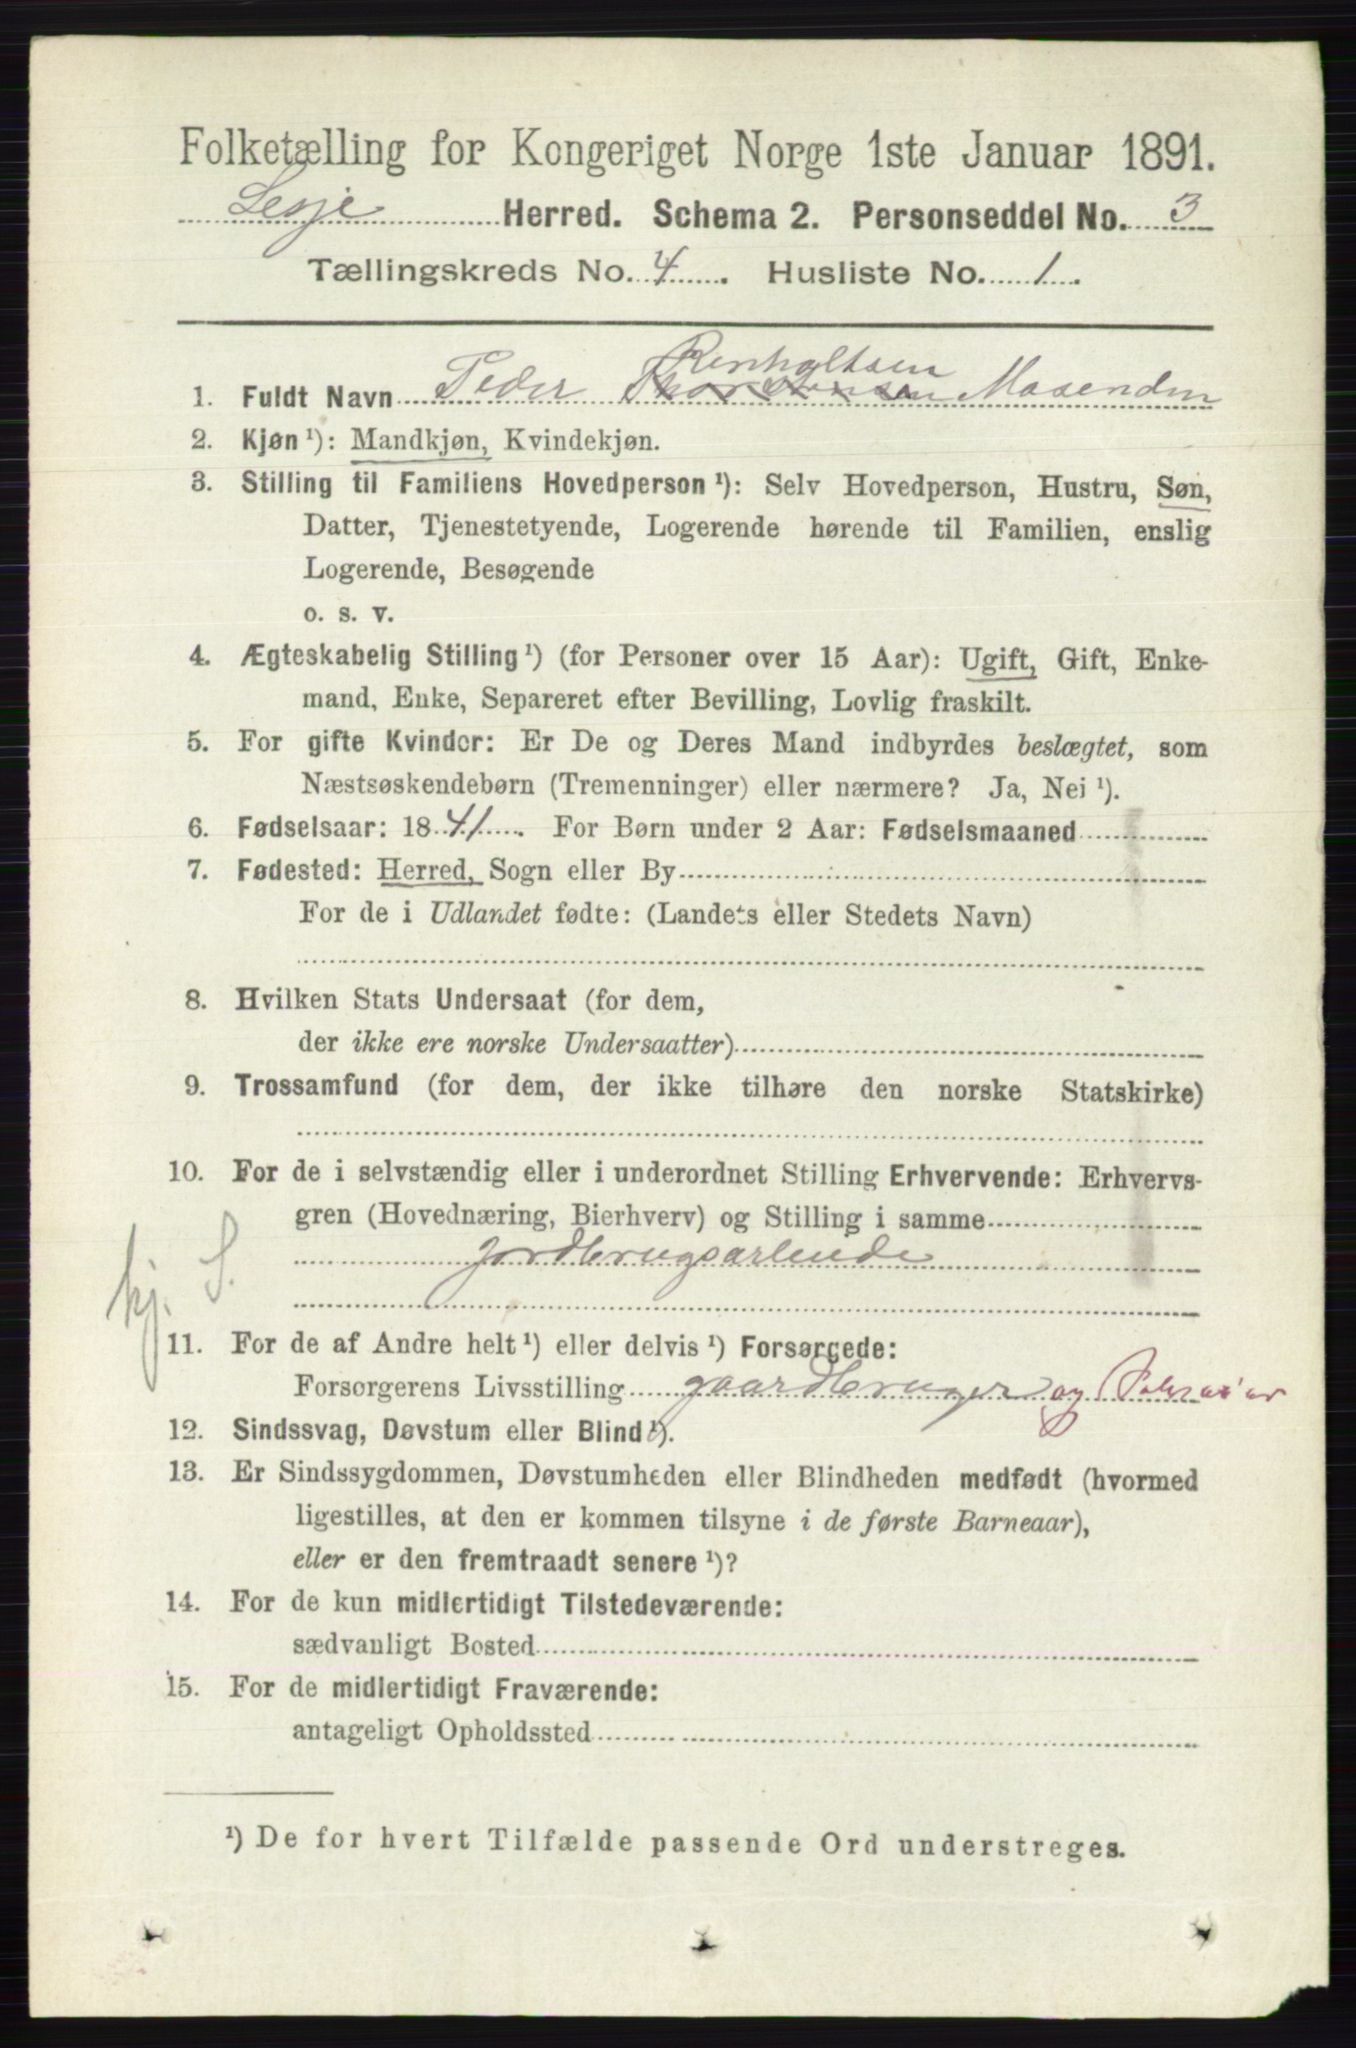 Folketælling for Kongeriget Norge 1ste Januar 1891.
Lesje Herred. Schema 2. Personseddel No. 3
Tællingskreds No. 4. Husliste No. 1.
Renholtsen
1. Fuldt Navn Peder Thorstensen Mosenden
2. Kjøn ¹): Mandkjøn, Kvindekjøn.
3. Stilling til Familiens Hovedperson ¹): Selv Hovedperson, Hustru, Søn,
Datter, Tjenestetyende, Logerende hørende til Familien, enslig
Logerende, Besøgende
o. s. v.
4. Ægteskabelig Stilling ¹) (for Personer over 15 Aar): Ugift, Gift, Enke-
mand, Enke, Separeret efter Bevilling, Lovlig fraskilt.
5. For gifte Kvinder: Er De og Deres Mand indbyrdes beslægtet, som
Næstsøskendebørn (Tremenninger) eller nærmere? Ja, Nei ¹).
6. Fødselsaar: 1841. For Børn under 2 Aar: Fødselsmaaned
7. Fødested: Herred, Sogn eller By
For de i Udlandet fødte: (Landets eller Stedets Navn)
8. Hvilken Stats Undersaat (for dem,
der ikke ere norske Undersaatter)
9. Trossamfund (for dem, der ikke tilhøre den norske Statskirke)
10. For de i selvstændig eller i underordnet Stilling Erhvervende: Erhvervs-
gren (Hovednæring, Bierhverv) og Stilling i samme
jordbrugsarbeide
kj. S.
11. For de af Andre helt ¹) eller delvis ¹) Forsørgede:
Forsørgerens Livsstilling gaardbruger og
12. Sindssvag, Døvstum eller Blind ¹).
13. Er Sindssygdommen, Døvstumheden eller Blindheden medfødt (hvormed
ligestilles, at den er kommen tilsyne i de første Barneaar),
eller er den fremtraadt senere ¹)?
14. For de kun midlertidigt Tilstedeværende:
sædvanligt Bosted
15. For de midlertidigt Fraværende:
antageligt Opholdssted
¹) De for hvert Tilfælde passende Ord understreges.